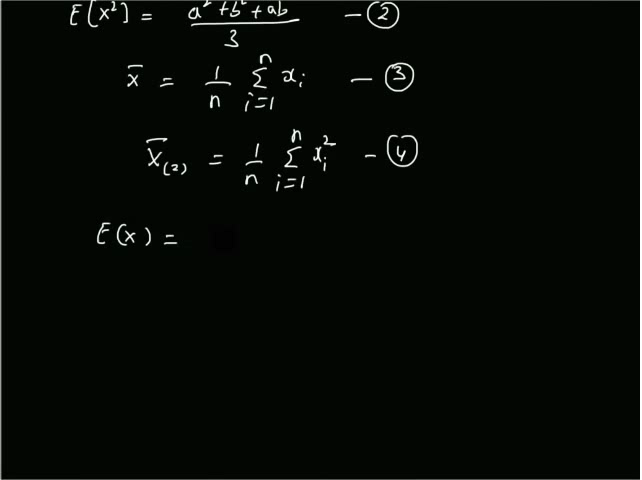 E[x²] = a² + b² + ab / 3 — ②
x̄ = 1/n ∑ᵢ₌₁ⁿ xᵢ — ③
x̄₍₂₎ = 1/n ∑ᵢ₌₁ⁿ xᵢ² — ④
E(x) =